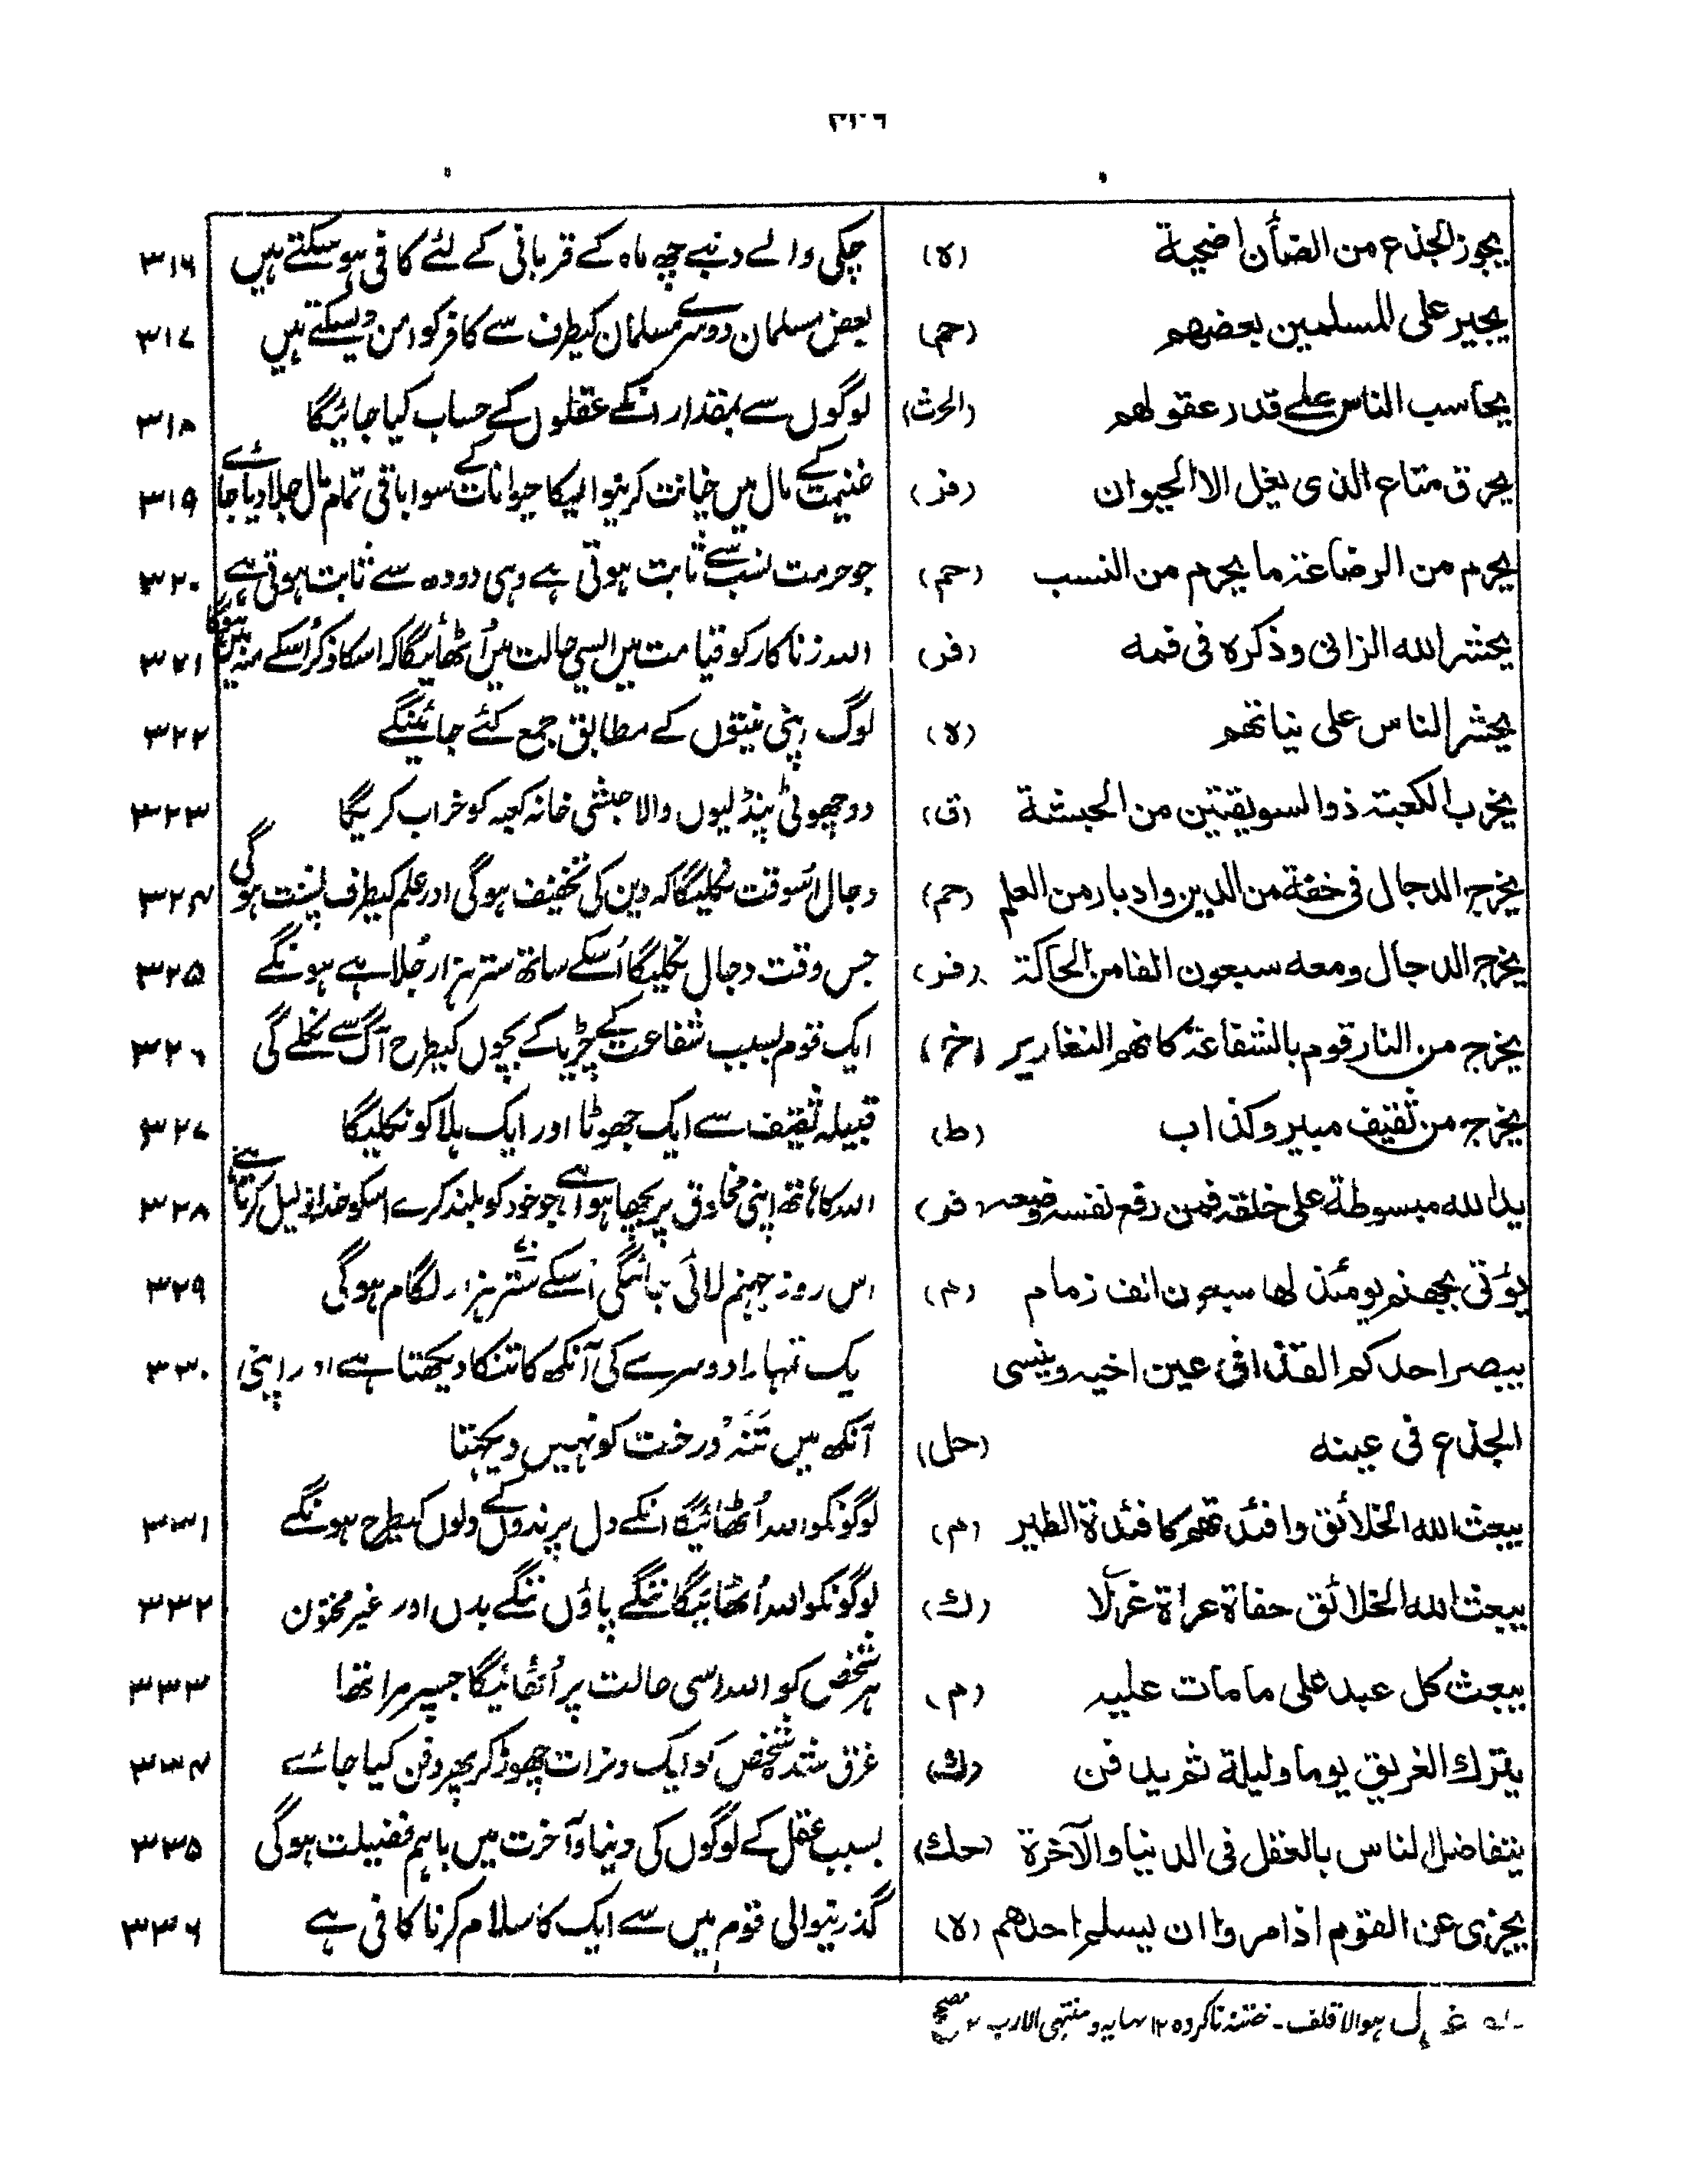 يجوز الجذع من الضأن اضحية (ه) چکی والے دنبے چھ ماہ کے قربانی کے لئے کافی ہو سکتے ہیں ۳۱۶
يجير على المسلمين بعضهم (حم) بعض مسلمان دوسرے مسلمان کیطرف سے کافر کو امن دیسکتے ہیں ۳۱۷
يحاسب الناس على قدر عقولهم (الحرث) لوگوں سے بمقدار انکے عقلوں کے حساب کیا جائیگا ۳۱۸
يحرق متاع الذى يغل الا الحيوان (فر) غنیمت کے مال میں خیانت کرنیوالیکا حیوانات کے سوا باقی تمام مال جلا دیا جائے ۳۱۹
يحرم من الرضاعة ما يحرم من النسب (حم) جو حرمت نسب سے ثابت ہوتی ہے وہی دودہ سے ثابت ہوتی ہے ۳۲۰
يحشر الله الزانى وذكره فى فمه (فر) اللہ زناکار کو قیامت میں ایسی حالت میں اُٹھائیگا کہ اسکا ذکر اُسکے منہ میں ہوگا ۳۲۱
يحشر الناس على نياتهم (ه) لوگ اپنی نیتوں کے مطابق جمع کئے جائینگے ۳۲۲
يخرب الكعبة ذو السويقتين من الحبشة (ق) دو چھوٹی پنڈلیوں والا حبشی خانہ کعبہ کو خراب کریگا ۳۲۳
يخرج الدجال فى خفة من الدين وادبار من العلم (حم) دجال اسوقت نکلیگا کہ دین کی تخفیف ہوگی اور علم کیطرف پشت ہوگی ۳۲۴
يخرج الدجال ومعه سبعون الفا من الحاكة (فر) جس وقت دجال نکلیگا اُسکے ساتھ ستر ہزار جُلاہے ہونگے ۳۲۵
يخرج من النار قوم بالشفاعة كانهم الثغارير (خ) ایک قوم بسبب شفاعت کے چڑیا کے بچوں کیطرح آگ سے نکلے گی ۳۲۶
يخرج من ثقيف مبير وكذاب (ط) قبیلہ ثقیف سے ایک جھوٹا اور ایک ہلاکو نکلیگا ۳۲۷
يد الله مبسوطة على خلقه فمن رفع نفسه وضعه (فر) اللہ کا ہاتھ اپنی مخلوق پر بچھا ہوا ہے جو خود کو بلند کرے اسکو خدا ذلیل کرتا ہے ۳۲۸
يؤتى بجهنم يومئذ لها سبعون الف زمام (م) اس روز جہنم لائی جائیگی اُسکے ستر ہزار لگام ہوگی ۳۲۹
يبصر احدكم القذا فى عين اخيه وينسى یک تمہارا دوسرے کی آنکھ کا تنکا دیکھتا ہے اور اپنی ۳۳۰
الجذع فى عينه (حل) آنکھ میں تنہ درخت کو نہیں دیکھتا
يبعث الله الخلائق وافئدتهم كافئدة الطير (م) لوگونکو اللہ اُٹھائیگا انکے دل پرندوں کے دلوں کیطرح ہونگے ۳۳۱
يبعث الله الخلائق حفاة عراة غرلا (ك) لوگونکو اللہ اُٹھائیگا ننگے پاؤں ننگے بدن اور غیر مختون ۳۳۲
يبعث كل عبد على ما مات عليه (م) ہر شخص کو اللہ اسی حالت پر اُٹھائیگا جسپر مرا تھا ۳۳۳
يترك الغريق يوما وليلة ثم يدفن (ك) غرق شدہ شخص کو ایک دنرات چھوڑ کر پھر دفن کیا جائے ۳۳۴
يتفاضل الناس بالعقل فى الدنيا والآخرة (حك) بسبب عقل کے لوگوں کی دنیا و آخرت میں باہم فضیلت ہوگی ۳۳۵
يجزى عن القوم اذا مروا ان يسلم احدهم (ه) گذرنیوالی قوم میں سے ایک کا سلام کرنا کافی ہے ۳۳۶
هو الاقلف ـ ختنہ ناکردہ ۱۲ ومنتہی الارب ۱۲ مصحح